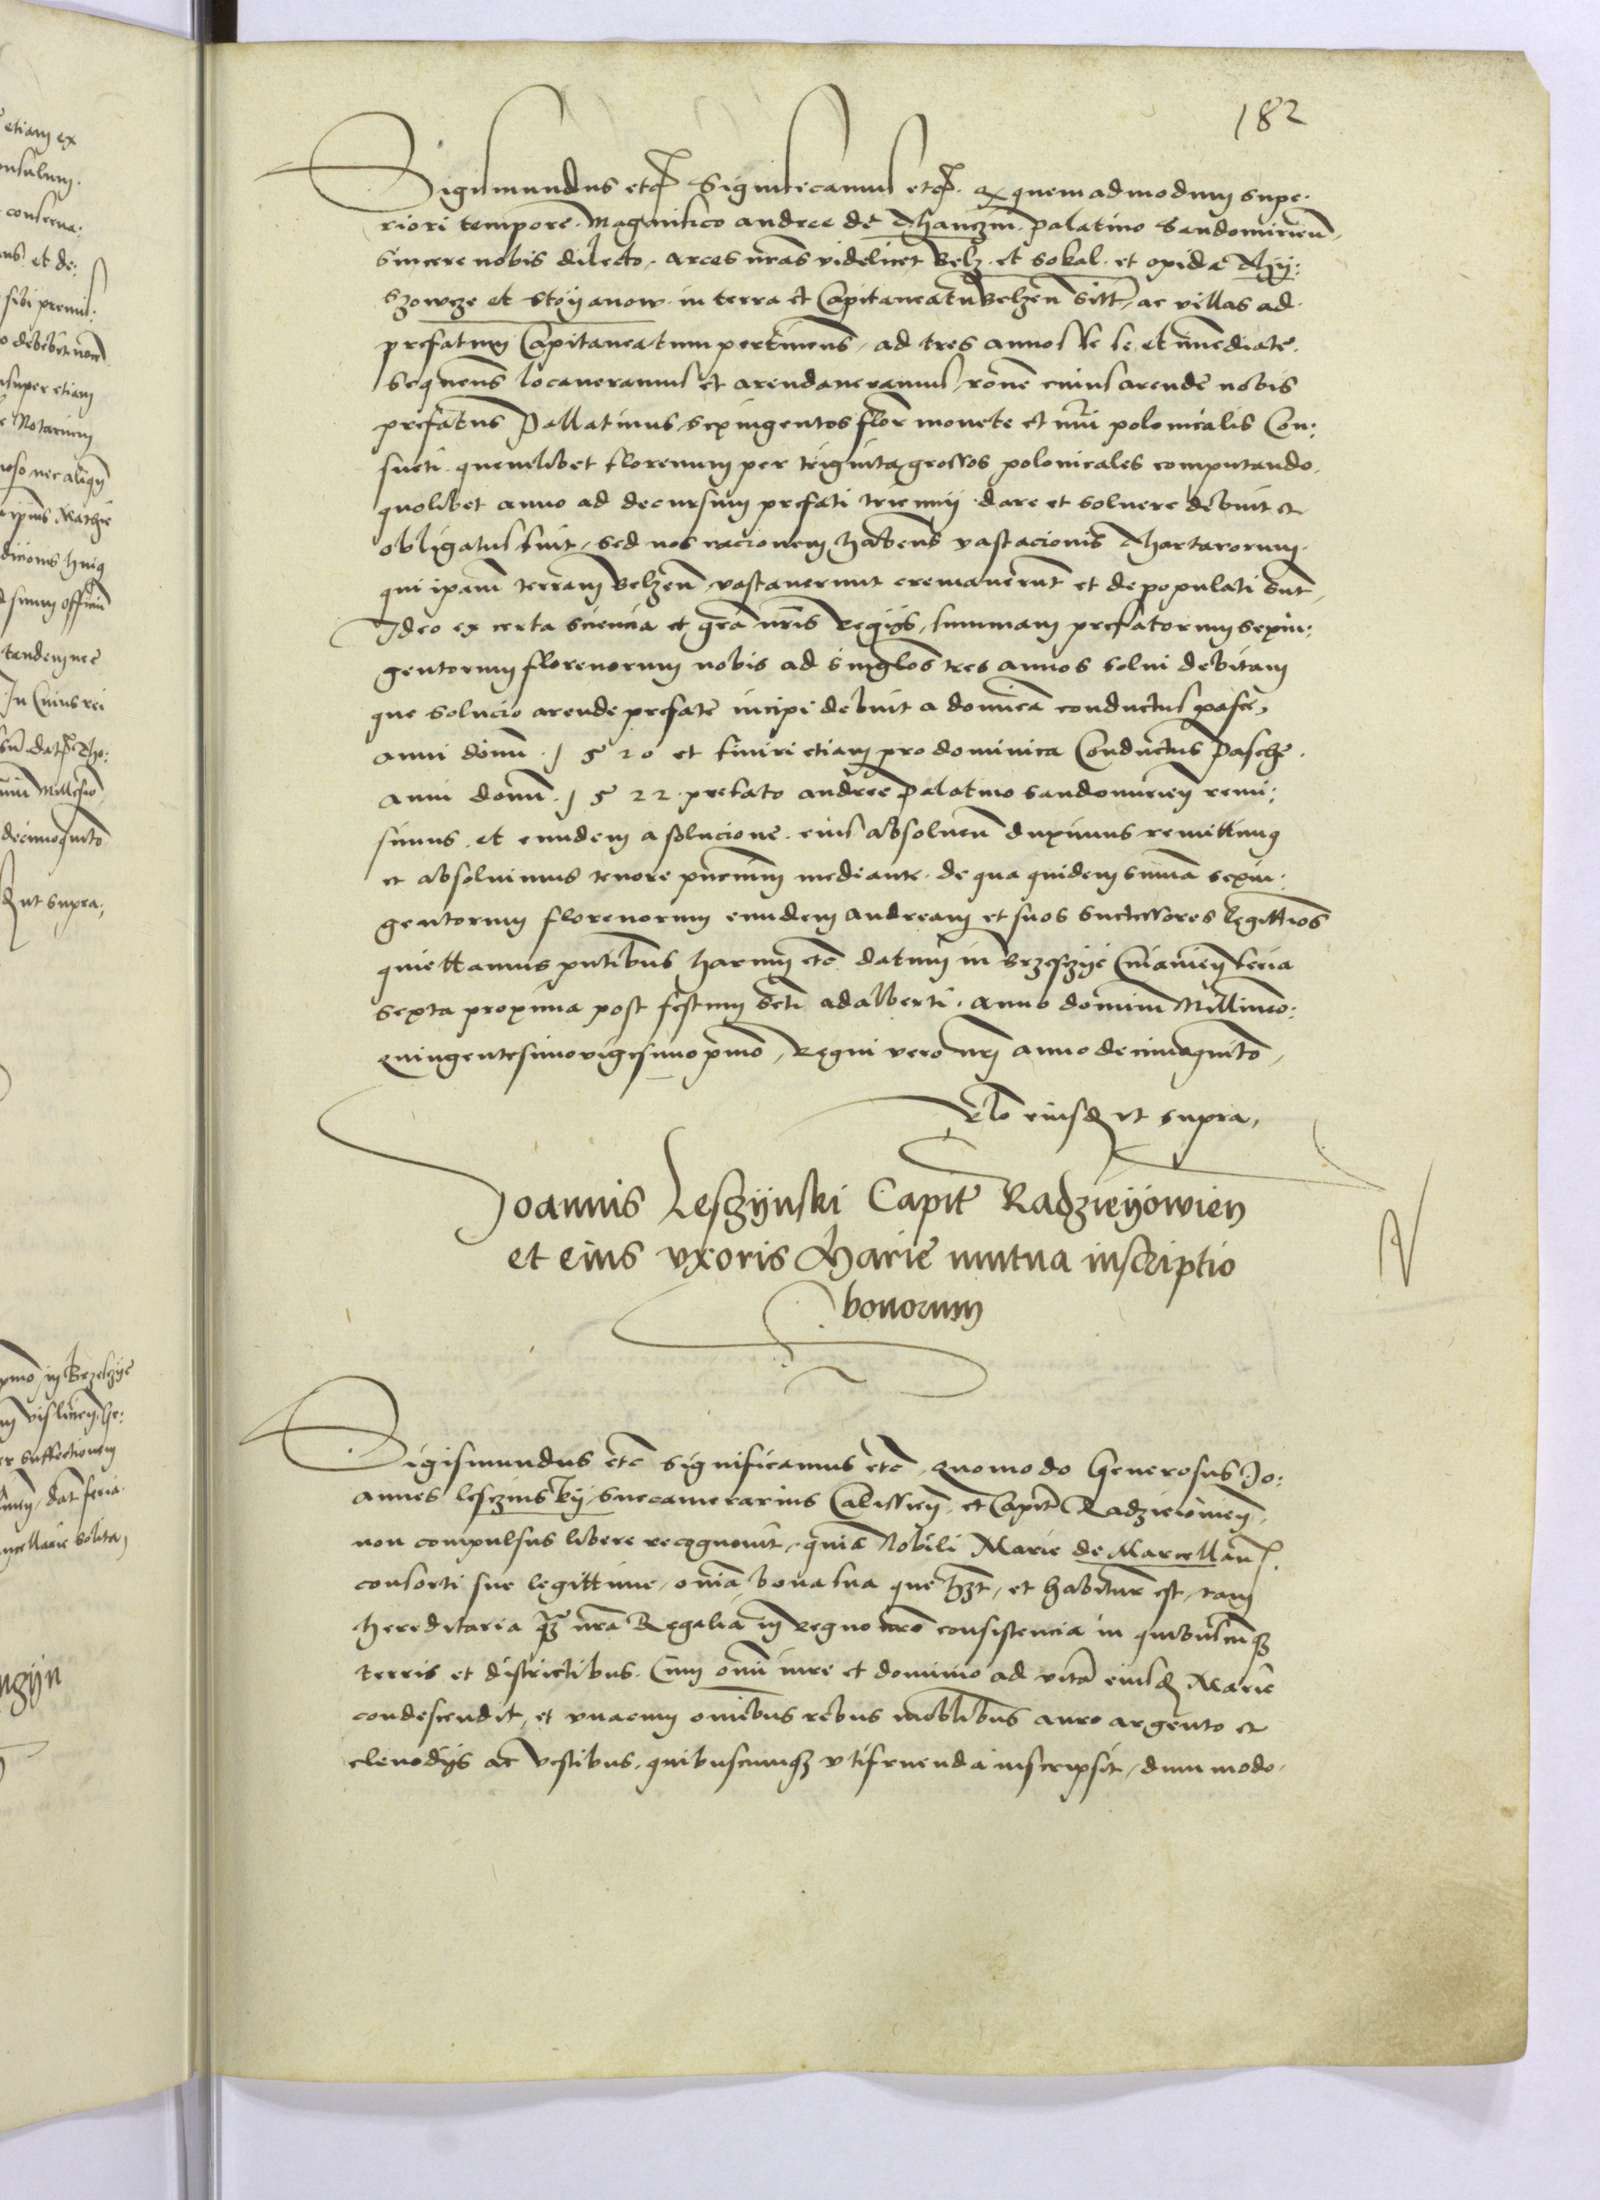 182
Sigismundus etc. Significamus etc. q. quemadmodum supe:
riori tempore Magnifico andree de Thanczin palatino Sandomirien̄
sincere nobis dilecto, arces n̄ras videlicet Belz et Sokal et opida Thy:
szowcze et Stoyanow in terra et Capitaneatu Belzen̄ sitt, ac villas ad
prefatum Capitaneatum pertinens, ad tres annos se se et im̄ediate
sequen̄s locaveramus et arendaveramus, rōne cuius arende nobis
prefatus Pallatinus sexingentos flor monete et nūi polonicalis Con:
sueti quemlibet florenum per triginta grossos polonicales computando
quolibet anno ad decursum prefati triennij dare et soluere debuit et
obligatus fuit, sed nos racionem haben̄s vastacionis Thartarorum
qui ipam̄ terram Belzen̄ vastaverunt cremaverunt et depopulati sunt
Ideo ex certa sciencia et gr̄a n̄ris Regijs, summam prefatorum sexin:
gentorum florenorum nobis ad singlos tres annos solui debitam
que solucio arende prefate incipi debuit a dominica conductus pasce,
anni domī 1520 et finiri etiam pro dominica Conductus Pasche
anni domī 1522 prefato andree Palatino sandomirien remi:
simus et eundem a solucione eius absoluen̄ duximus remittimq
et absoluimus tenore pn̄cium mediante de qua quidem sum̄a sexin:
gentorum florenorum eundem andream et suos successores legittīos
quiettamus pn̄tibus harum etc datum in Brzesczye Cuiavien feria
sexta proxima post festum Scti adalberti anno domini Millimo:
quingentesimovigesimoprimo, Regni vero nr̄j anno decimoquinto
Rlo eiusd ut supra,
Joannis Lesczynski Capit Radzieyowien
et eius vxoris Marie mutua inscriptio
bonorum
Sigismundus etc significamus etc, quomodo Generosus Jo:
annes lesczinskij succamerarius Calissien, et Capit Radzieiowien,
non compulsus libere recognouit, quia Nobili Marie de Marcellan
consorti sue legittime, om̄ia bona sua que h̄z̄t, et habitur̄ est, tam
hereditaria q̄z n̄ra Regalia in Regno n̄ro consistencia in quibuscunqz
terris et districtibus. Cum om̄i iure et dominio ad vitā eiusd Marie
condescendit, et vnacum om̄ibus rebus mobilibus auro argento et
clenodijs ac vestibus quibuscumqz vtifruenda inscripsit, dummodo